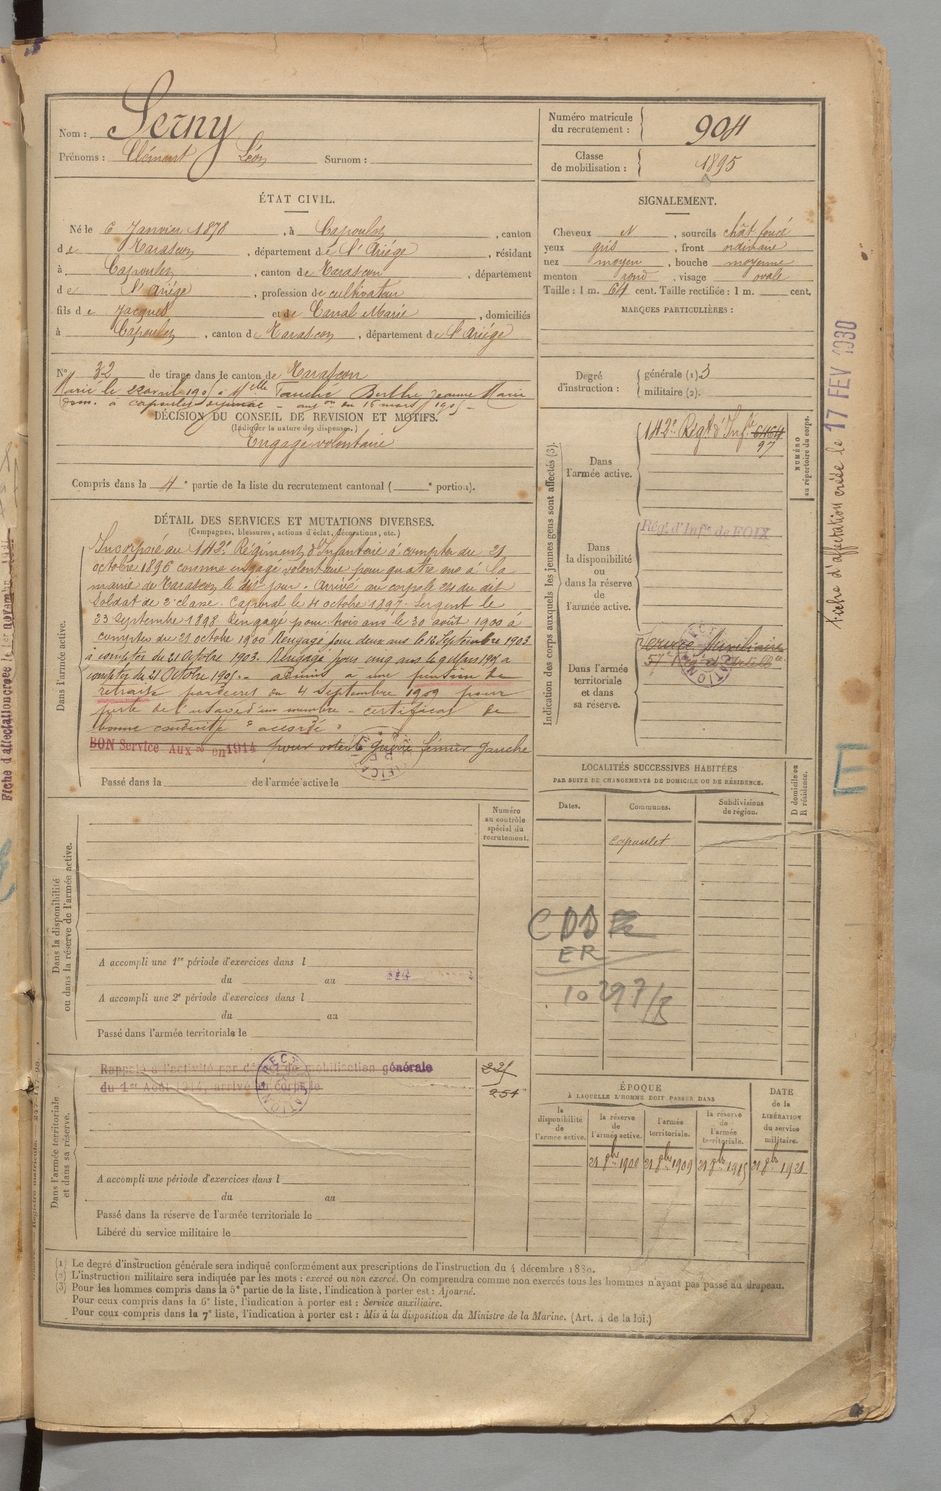 Nom : Serny
Prénoms : Clément Léon Surnom :
Numéro matricule du recrutement : 904
Classe de mobilisation : 1895
ÉTAT CIVIL.
Né le 6 Janvier 1878, à Capoulet, canton
de Tarascon, département de l'Ariége, résidant
à Capoulet, canton de Tarascon, département
de l'Ariége, profession de cultivateur
fils de Jacques et de Carral Marie, domiciliés
à Capoulet, canton de Tarascon, département de l'Ariége
N° 32 de tirage dans le canton de Tarascon
Marié le 22 avril 1905 à Melle Fauché Berthe Jeanne Marie
à Capoulet 15 mars 1905
DÉCISION DU CONSEIL DE REVISION ET MOTIFS.
(Indiquer la nature des dispenses.)
Engagé volontaire
Compris dans la 4e partie de la liste du recrutement cantonal ( e portion).
SIGNALEMENT.
Cheveux N, sourcils chât foncé
yeux gris, front ordinaire
nez moyen, bouche moyenne
menton rond, visage ovale
Taille : 1 m. 64 cent. Taille rectifiée : 1 m. cent.
MARQUES PARTICULIÈRES :
Degré d'instruction : générale (1) 3
militaire (2).
DÉTAIL DES SERVICES ET MUTATIONS DIVERSES.
(Campagnes, blessures, actions d'éclat, décorations, etc.)
Dans l'armée active.
Incorporé au 142e Régiment d'Infanterie à compter du 21
octobre 1896 comme engagé volontaire pour quatre ans à la
mairie de Tarascon le dit jour. Arrivé au corps le 22 du dit
Soldat de 2e classe. Caporal le 4 octobre 1897. Sergent le
23 Septembre 1898. Rengagé pour trois ans le 30 août 1900 à
compter du 21 octobre 1900. Rengagé pour deux ans le 12 Septembre 1903
à compter du 21 Octobre 1903. Rengagé pour cinq ans le 9 Mars 1905 à
compter du 21 Octobre 1905. admis à une pension de
retraite par décret du 4 Septembre 1909 pour
perte de l'usage d'un membre - certificat de
bonne conduite "accordé"
BON Service Auxre en 1914 fémur gauche
Passé dans la de l'armée active le
Indication des corps auxquels les jeunes gens sont affectés (3).
NUMÉRO au répertoire du corps.
Dans l'armée active. 142e Régt d'Infie
97
Dans la disponibilité ou dans la réserve de l'armée active.
Rég. d'Infie de FOIX
Dans l'armée territoriale et dans sa réserve.
Service Auxiliaire
LOCALITÉS SUCCESSIVES HABITÉES
PAR SUITE DE CHANGEMENTS DE DOMICILE OU DE RÉSIDENCE.
Dates. Communes. Subdivisions de région. D domicile ou R résidence.
Capoulet
CDD
ER
10297/B
E
Numéro au contrôle spécial du recrutement.
Dans la disponibilité ou dans la réserve de l'armée active.
A accompli une 1re période d'exercices dans l
du au
A accompli une 2e période d'exercices dans l
du au
Passé dans l'armée territoriale le
Dans l'armée territoriale et dans sa réserve.
Rappelé à l'activité par décret de mobilisation générale
du 1er Août 1914, arrivé au corps le
RECTIFICATION
251
A accompli une période d'exercices dans l
du au
Passé dans la réserve de l'armée territoriale le
Libéré du service militaire le
ÉPOQUE
À LAQUELLE L'HOMME DOIT PASSER DANS
la disponibilité de l'armée active. la réserve de l'armée active. l'armée territoriale. la réserve de l'armée territoriale.
DATE de la LIBÉRATION du service militaire.
21 8bre 1900 21 8bre 1909 21 8bre 1915 21 8bre 1921
(1) Le degré d'instruction générale sera indiqué conformément aux prescriptions de l'instruction du 4 décembre 1889.
(2) L'instruction militaire sera indiquée par les mots : exercé ou non exercé. On comprendra comme non exercés tous les hommes n'ayant pas passé au drapeau.
(3) Pour les hommes compris dans la 5e partie de la liste, l'indication à porter est : Ajourné.
Pour ceux compris dans la 6e liste, l'indication à porter est : Service auxiliaire.
Pour ceux compris dans la 7e liste, l'indication à porter est : Mis à la disposition du Ministre de la Marine. (Art. 4 de la loi.)
Fiche d'affectation créée le 17 FEV 1930
Fiche d'affectation créée le 1er novembre